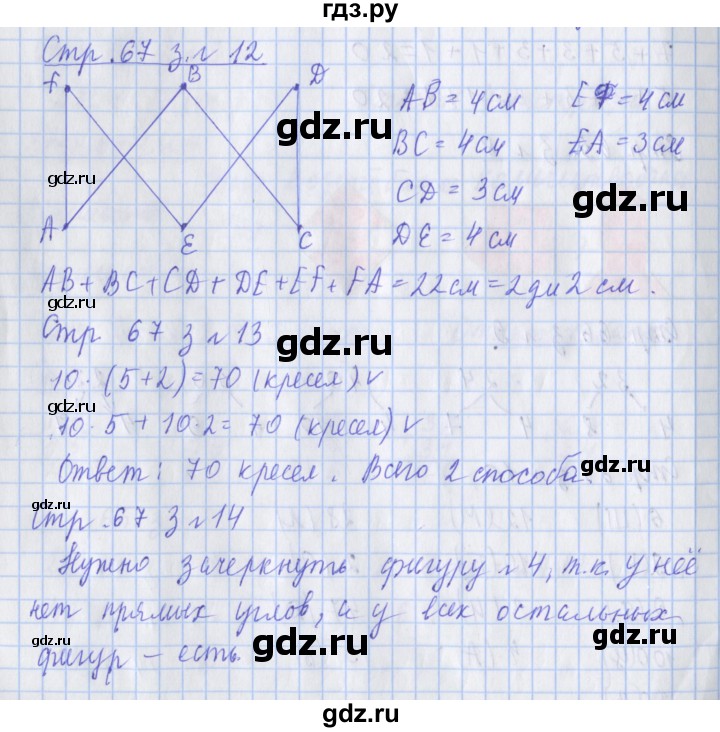 гдз.ру
Стр. 67 з. № 12
F B D
A E C
AB = 4 см EF = 4 см
BC = 4 см EA = 3 см
CD = 3 см
DE = 4 см
AB + BC + CD + DE + EF + FA = 22 см = 2 дм 2 см.
Стр 67 з № 13
10 · (5+2) = 70 (кресел) v
10 · 5 + 10 · 2 = 70 (кресел) v
Ответ: 70 кресел. Всего 2 способа.
Стр. 67 з № 14
Нужно зачеркнуть фигуру № 4, т.к. у неё
нет прямых углов, а у всех остальных
фигур – есть.
gdz.ru
gdz.ru
gdz.ru
gdz.ru
gdz.ru
gdz.ru
gdz.ru
gdz.ru
gdz.ru
gdz.ru
gdz.ru
gdz.ru